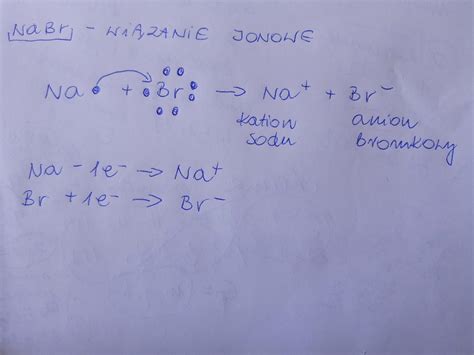 NaBr - WIĄZANIE JONOWE
Na + Br → Na⁺ + Br⁻
kation anion
sodu bromkowy
Na - 1e⁻ → Na⁺
Br + 1e⁻ → Br⁻